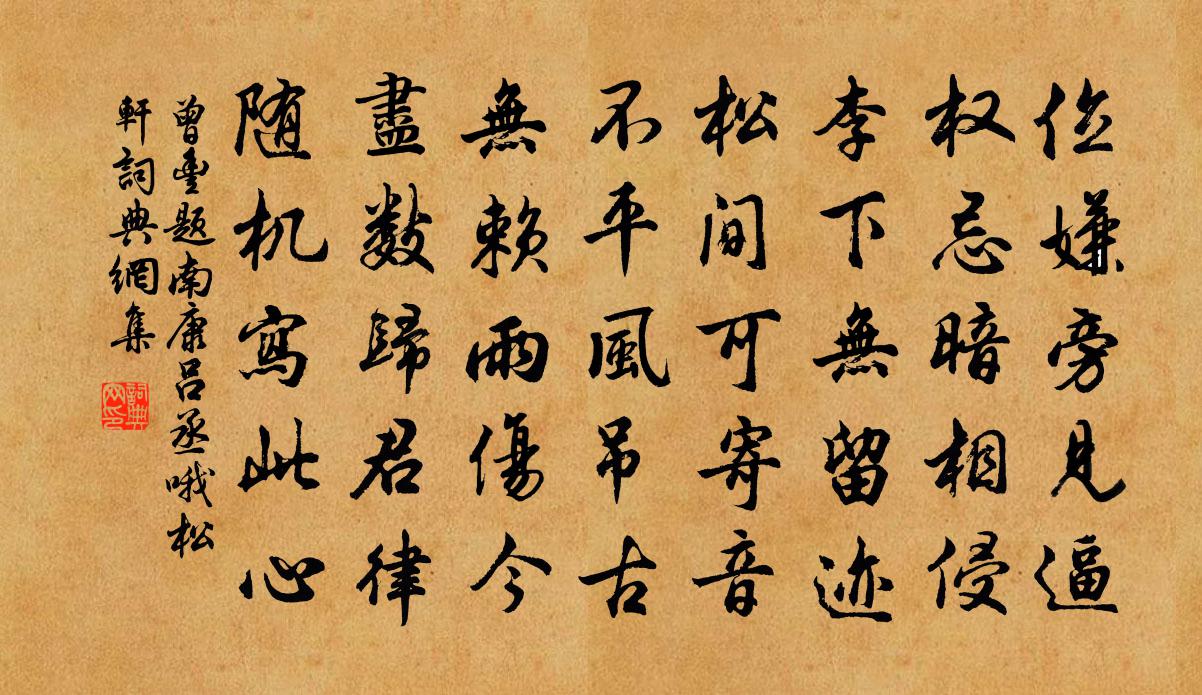 俭嫌旁见逼
权忌暗相侵
李下無留迹
松间可寄音
不平風吊古
無赖雨傷今
盡数歸君律
随机寫此心
曾豐题南康吕丞哦松
軒詞典網集
詞典网印